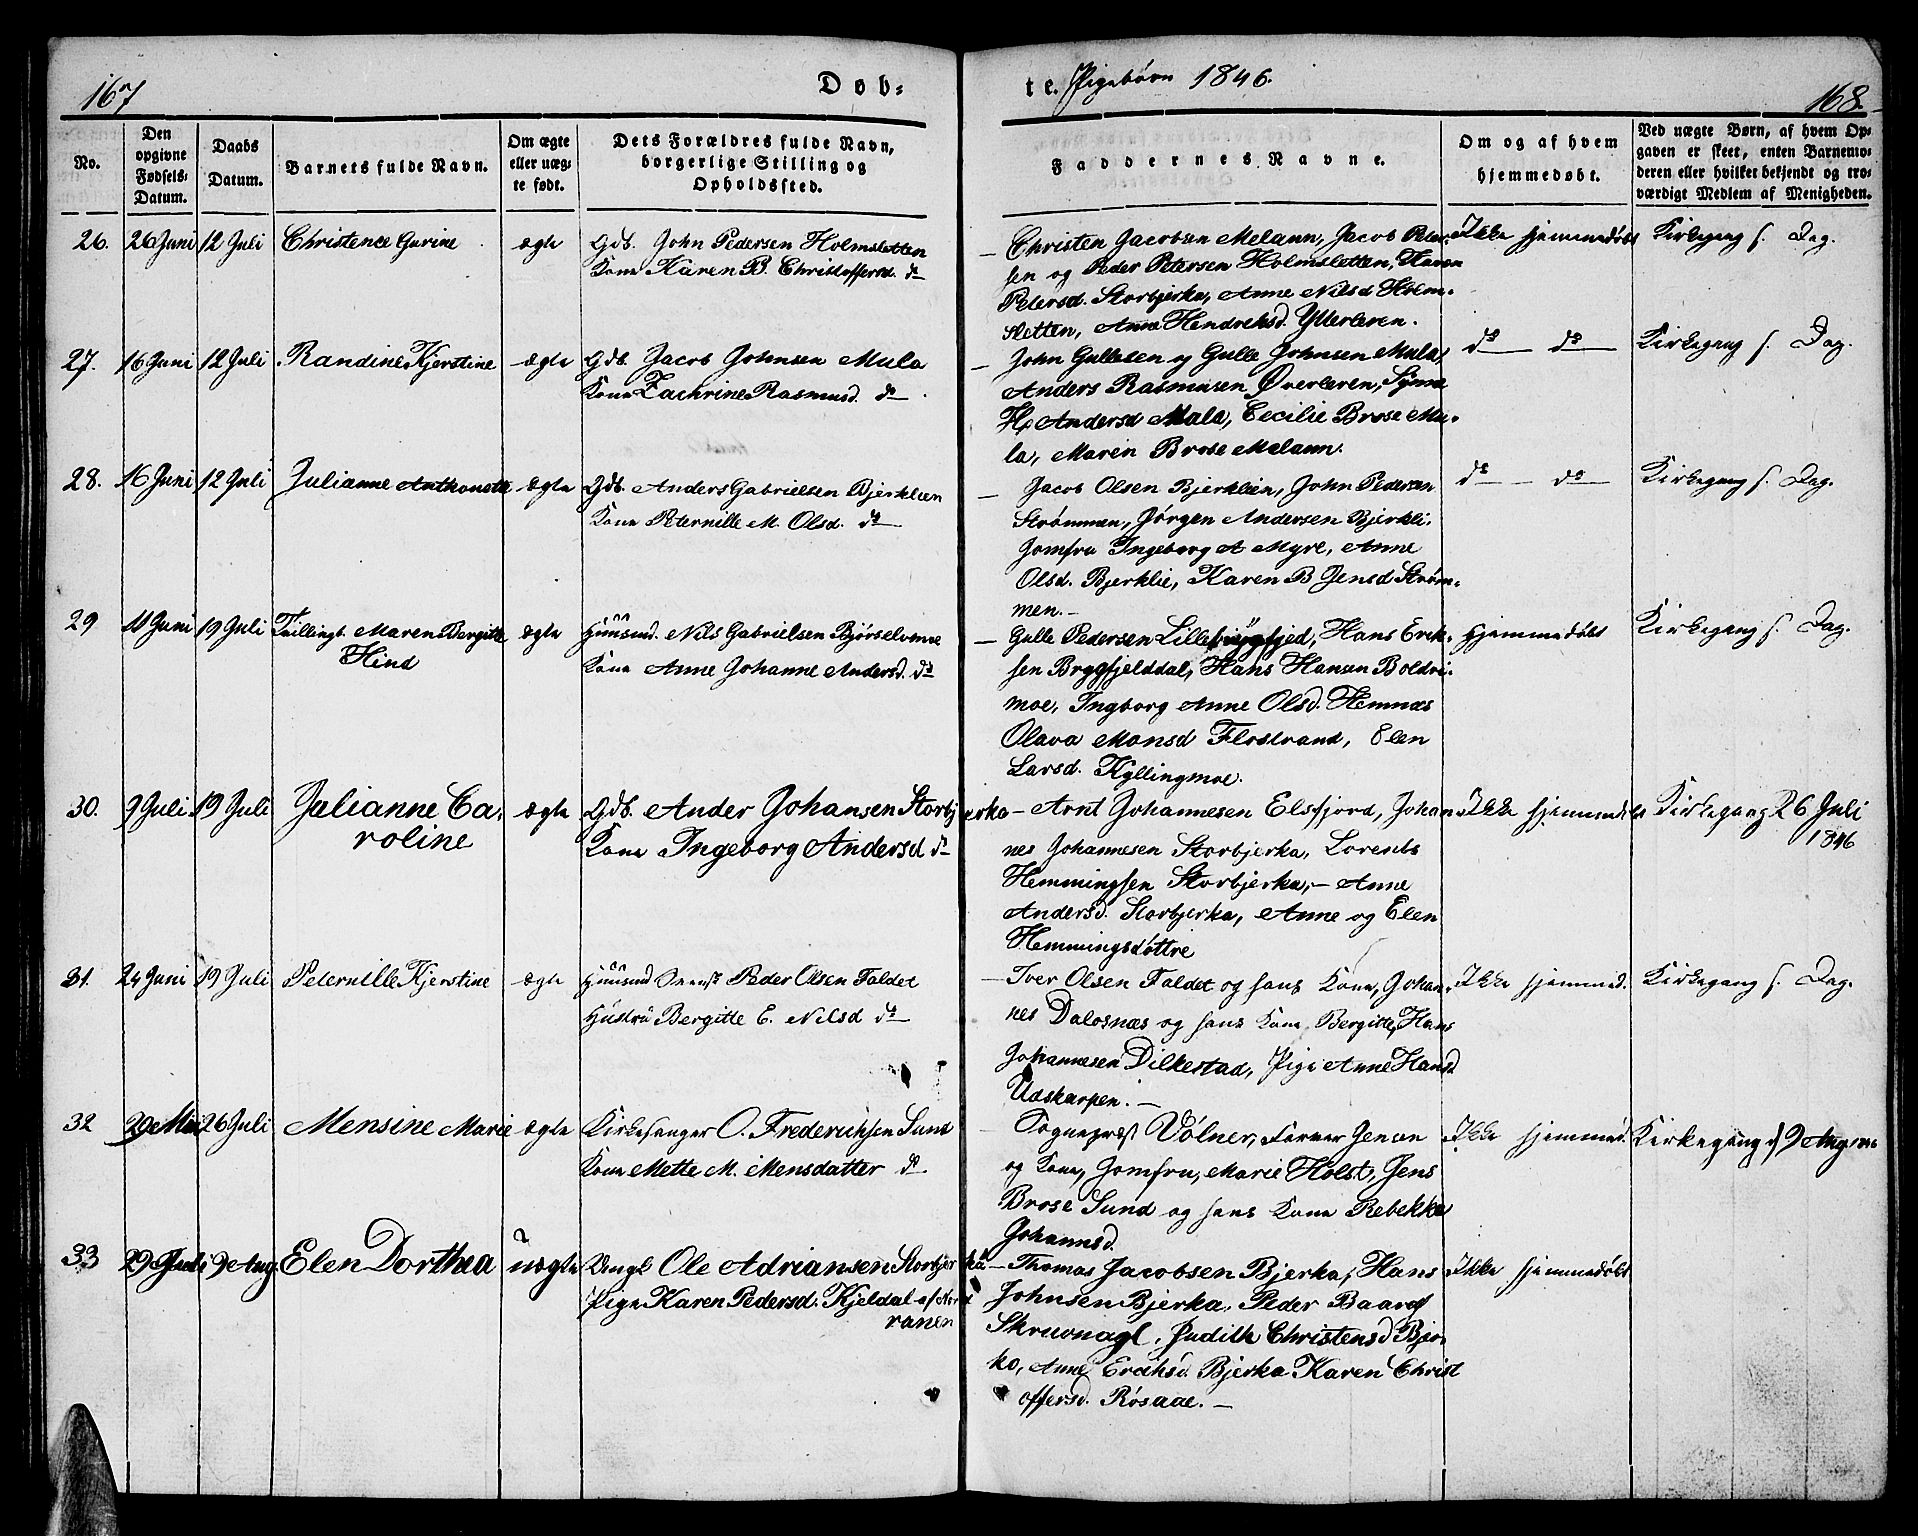 167
Døb-
te. Pigebørn 1846.
168.
No.
Den opgivne Fødsels-Datum.
Daabs Datum.
Barnets fulde Navn.
Om ægte eller uæg-te født.
Dets Forældres fulde Navn, borgerlige Stilling og Opholdssted.
Faddernes Navne.
Om og af hvem hjemmedøbt.
Ved uægte Børn, af hvem Op-gaven er skeet, enten Barnemo-deren eller hvilket bekjendt og tro-værdigt Medlem af Menigheden.
26. 26 Juni 12 Juli Christence Gurine ægte Gdb. John Pedersen Holmsletten
Kone Karen B. Christoffersd. do
Christen Jacobsen Melann, Jacob Peter-
sen og Peder Petersen Holmsletten, Karen
Petersd. Storbjerka, Anne Nilsd Holm-
sletten, Anne Hendreksd. Ytterleren.
Ikke hjemmedøbt Kirkegang s. Dag.
27. 16 Juni 12 Juli Randine Kjerstine ægte Gdb. Jacob Johnsen Mula
Kone Zachrine Rasmusd. do
John Gullesen og Gulle Johnsen Mula,
Anders Rasmusen Øverleren, Synne
H. Andersd Mula, Cecilie Brose Mu-
la, Maren Brose Melann.
do do Kirkegang s. Dag.
28. 16 Juni 12 Juli Julianne Anthonette ægte Gdb. Anders Gabrielsen Bjerklien
Kone Peternille M. Olsd. do
Jacob Olsen Bjerklien, John Pedersen
Strømmen, Jørgen Andersen Bjerkli.
Jomfru Ingeborg A Myre, Anne
Olsd. Bjerklie, Karen B Jensd Strøm-
men.
do do Kirkegang s. Dag.
29 11 Juni 19 Juli Tvillingb. Maren Bergitte ægte Huusmd. Nils Gabrielsen Bjørselvmoe
Hind
Kone Anne Johanne Andersd. do
Gulle Pedersen Lillebrygfjed, Hans Erik-
sen Brygfjelddal, Hans Hansen Boldri-
moe, Ingborg Anne Olsd. Hemnæs
Olava Monsd Flostrand, Elen
Larsd. Kyllingmoe.
Hjemmedøbt Kirkegang s. Dag.
30. 9 Juli 19 Juli Julianne Ca-
roline
ægte Gdb. Ander Johansen Storbjerka
Kone Ingeborg Andersd do
Arnt Johannesen Elsfjord, Johan-
nes Johannesen Storbjerka, Lorents
Hemmingsen Storbjerka, Anne
Andersd. Storbjerka, Anne og Elen
Hemmingsdøttre
Ikke hjemmedøbt Kirkegang 26 Juli
1846
31. 24 Juni 19 Juli Peternille Kjerstine ægte Huusmd Peder Olsen Faldet
Hustru Bergitte E. Nilsd do
Iver Olsen Faldet og hans Kone, Johan-
nes Dalosnæs og hans Kone Bergitte, Hans
Johannesen Dilkestad, Pige Anne Hansd
Udskarpen.
Ikke hjemmed. Kirkegang s. Dag.
32 29 Mai 26 Juli Mensine Marie ægte Kirkesanger O. Frederichsen Sund
Kone Mette M. Mensdatter do
Sogneprest Vólner, Jensen
og Kone, Jomfru, Marie Holst, Jens
Brose Sund og hans Kone Rebekke
Johannsd.
Ikke hjemmed. Kirkegang 9 Aug
33 29 Juli 9 Aug. Elen Dorthea uægte Ungk Ole Adriansen Storbjerka
Pige Karen Pedersd. Kjeldal af Nord
ranen
Thomas Jacobsen Bjerka, Hans
Johnsen Bjerka, Peder Baars
Skruvnagl, Judith Christensd Bjer-
ka, Anne Eriksd. Bjerka Karen Christ
offersd. Røsaae.
Ikke hjemmedøbt